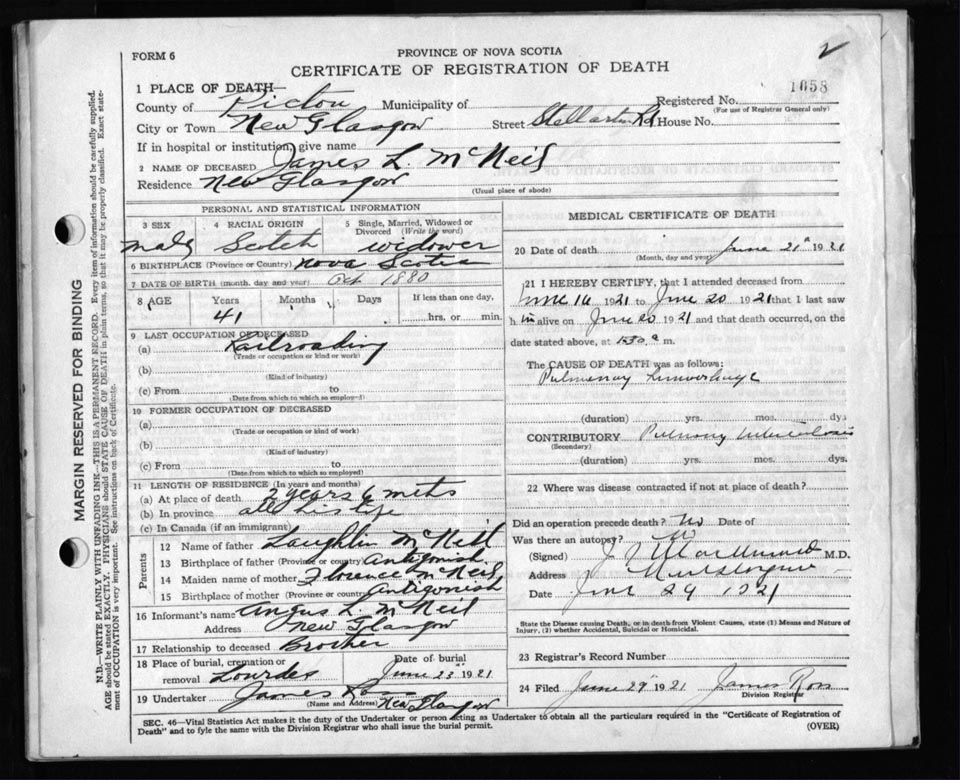 FORM 6
PROVINCE OF NOVA SCOTIA
CERTIFICATE OF REGISTRATION OF DEATH
2
1658
1 PLACE OF DEATH—
County of Pictou Municipality of Registered No.
(For use of Registrar General only)
City or Town New Glasgow Street Stellarton Rd House No.
If in hospital or institution, give name
2 NAME OF DECEASED James L. McNeil
Residence New Glasgow
(Usual place of abode)
PERSONAL AND STATISTICAL INFORMATION
3 SEX 4 RACIAL ORIGIN 5 Single, Married, Widowed or Divorced (Write the word)
Male Scotch widower
6 BIRTHPLACE (Province or Country) Nova Scotia
7 DATE OF BIRTH (month, day and year) Oct 1880
8 AGE Years Months Days If less than one day,
41 hrs. or min.
9 LAST OCCUPATION OF DECEASED
(a) Railroading
(Trade or occupation or kind of work)
(b)
(Kind of industry)
(c) From to
(Date from which to which so employed)
10 FORMER OCCUPATION OF DECEASED
(a)
(Trade or occupation or kind of work)
(b)
(Kind of industry)
(c) From to
(Date from which to which so employed)
11 LENGTH OF RESIDENCE (In years and months)
(a) At place of death 2 years 6 mths
(b) In province all his life
(c) In Canada (if an immigrant)
Parents
12 Name of father Laughlin McNeil
13 Birthplace of father (Province or country) Antigonish
14 Maiden name of mother Florence McNeil
15 Birthplace of mother (Province or country) Antigonish
16 Informant's name Angus L. McNeil
Address New Glasgow
17 Relationship to deceased Brother
18 Place of burial, cremation or removal Lourdes Date of burial June 23rd 1921
19 Undertaker James Ross New Glasgow
(Name and Address)
MEDICAL CERTIFICATE OF DEATH
20 Date of death June 21st 1921
(Month, day and year)
21 I HEREBY CERTIFY, that I attended deceased from
June 16 1921 to June 20 1921 that I last saw
h im alive on June 20 1921 and that death occurred, on the
date stated above, at 1.30 a m.
The CAUSE OF DEATH was as follows:
Pulmonary Hemorrhage
(duration) yrs. mos. dys
CONTRIBUTORY Pulmonary tuberculosis
(Secondary)
(duration) yrs. mos. dys.
22 Where was disease contracted if not at place of death?
Did an operation precede death? No Date of
Was there an autopsy?
(Signed) M.D.
Address New Glasgow
Date June 29 1921
State the Disease causing Death, or in death from Violent Causes, state (1) Means and Nature of Injury, (2) whether Accidental, Suicidal or Homicidal.
23 Registrar's Record Number
24 Filed June 29th 1921 James Ross
Division Registrar
SEC. 46—Vital Statistics Act makes it the duty of the Undertaker or person acting as Undertaker to obtain all the particulars required in the "Certificate of Registration of
Death" and to fyle the same with the Division Registrar who shall issue the burial permit. (OVER)
MARGIN RESERVED FOR BINDING
N.B.—WRITE PLAINLY WITH UNFADING INK—THIS IS A PERMANENT RECORD. Every item of information should be carefully supplied.
AGE should be stated EXACTLY. PHYSICIANS should STATE CAUSE OF DEATH in plain terms, so that it may be properly classified. Exact state-
ment of OCCUPATION is very important. See instructions on back of Certificate.